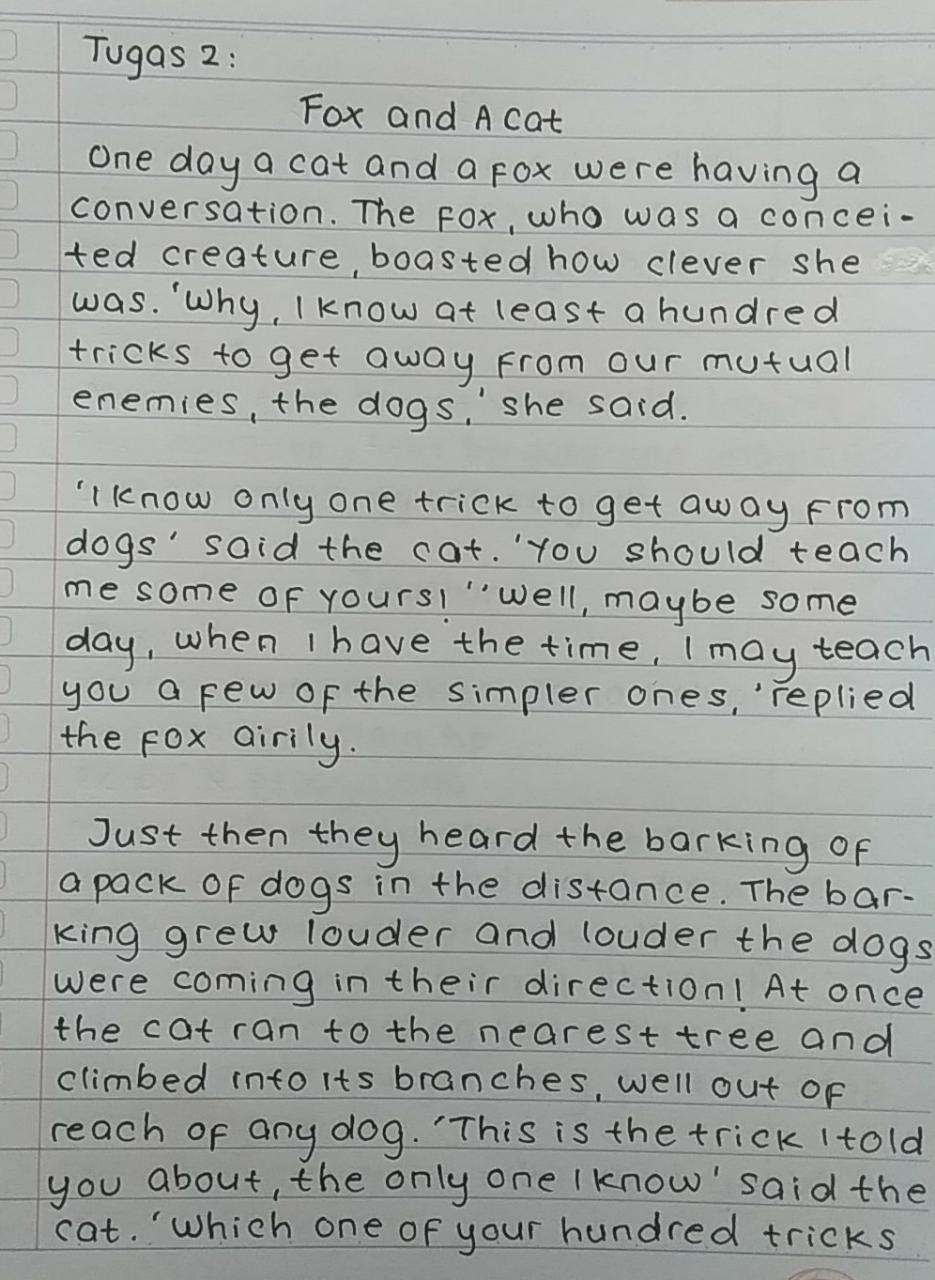 Tugas 2:
Fox and A cat
One day a cat and a fox were having a
conversation. The fox, who was a concei-
ted creature, boasted how clever she
was. 'Why, I know at least a hundred
tricks to get away from our mutual
enemies, the dogs,' she said.
'I know only one trick to get away from
dogs' said the cat. 'You should teach
me some of yours!' 'Well, maybe some
day, when I have the time, I may teach
you a few of the simpler ones,' replied
the fox airily.
Just then they heard the barking of
a pack of dogs in the distance. The bar-
king grew louder and louder the dogs
were coming in their direction! At once
the cat ran to the nearest tree and
climbed into its branches, well out of
reach of any dog. 'This is the trick I told
you about, the only one I know' said the
cat. 'Which one of your hundred tricks